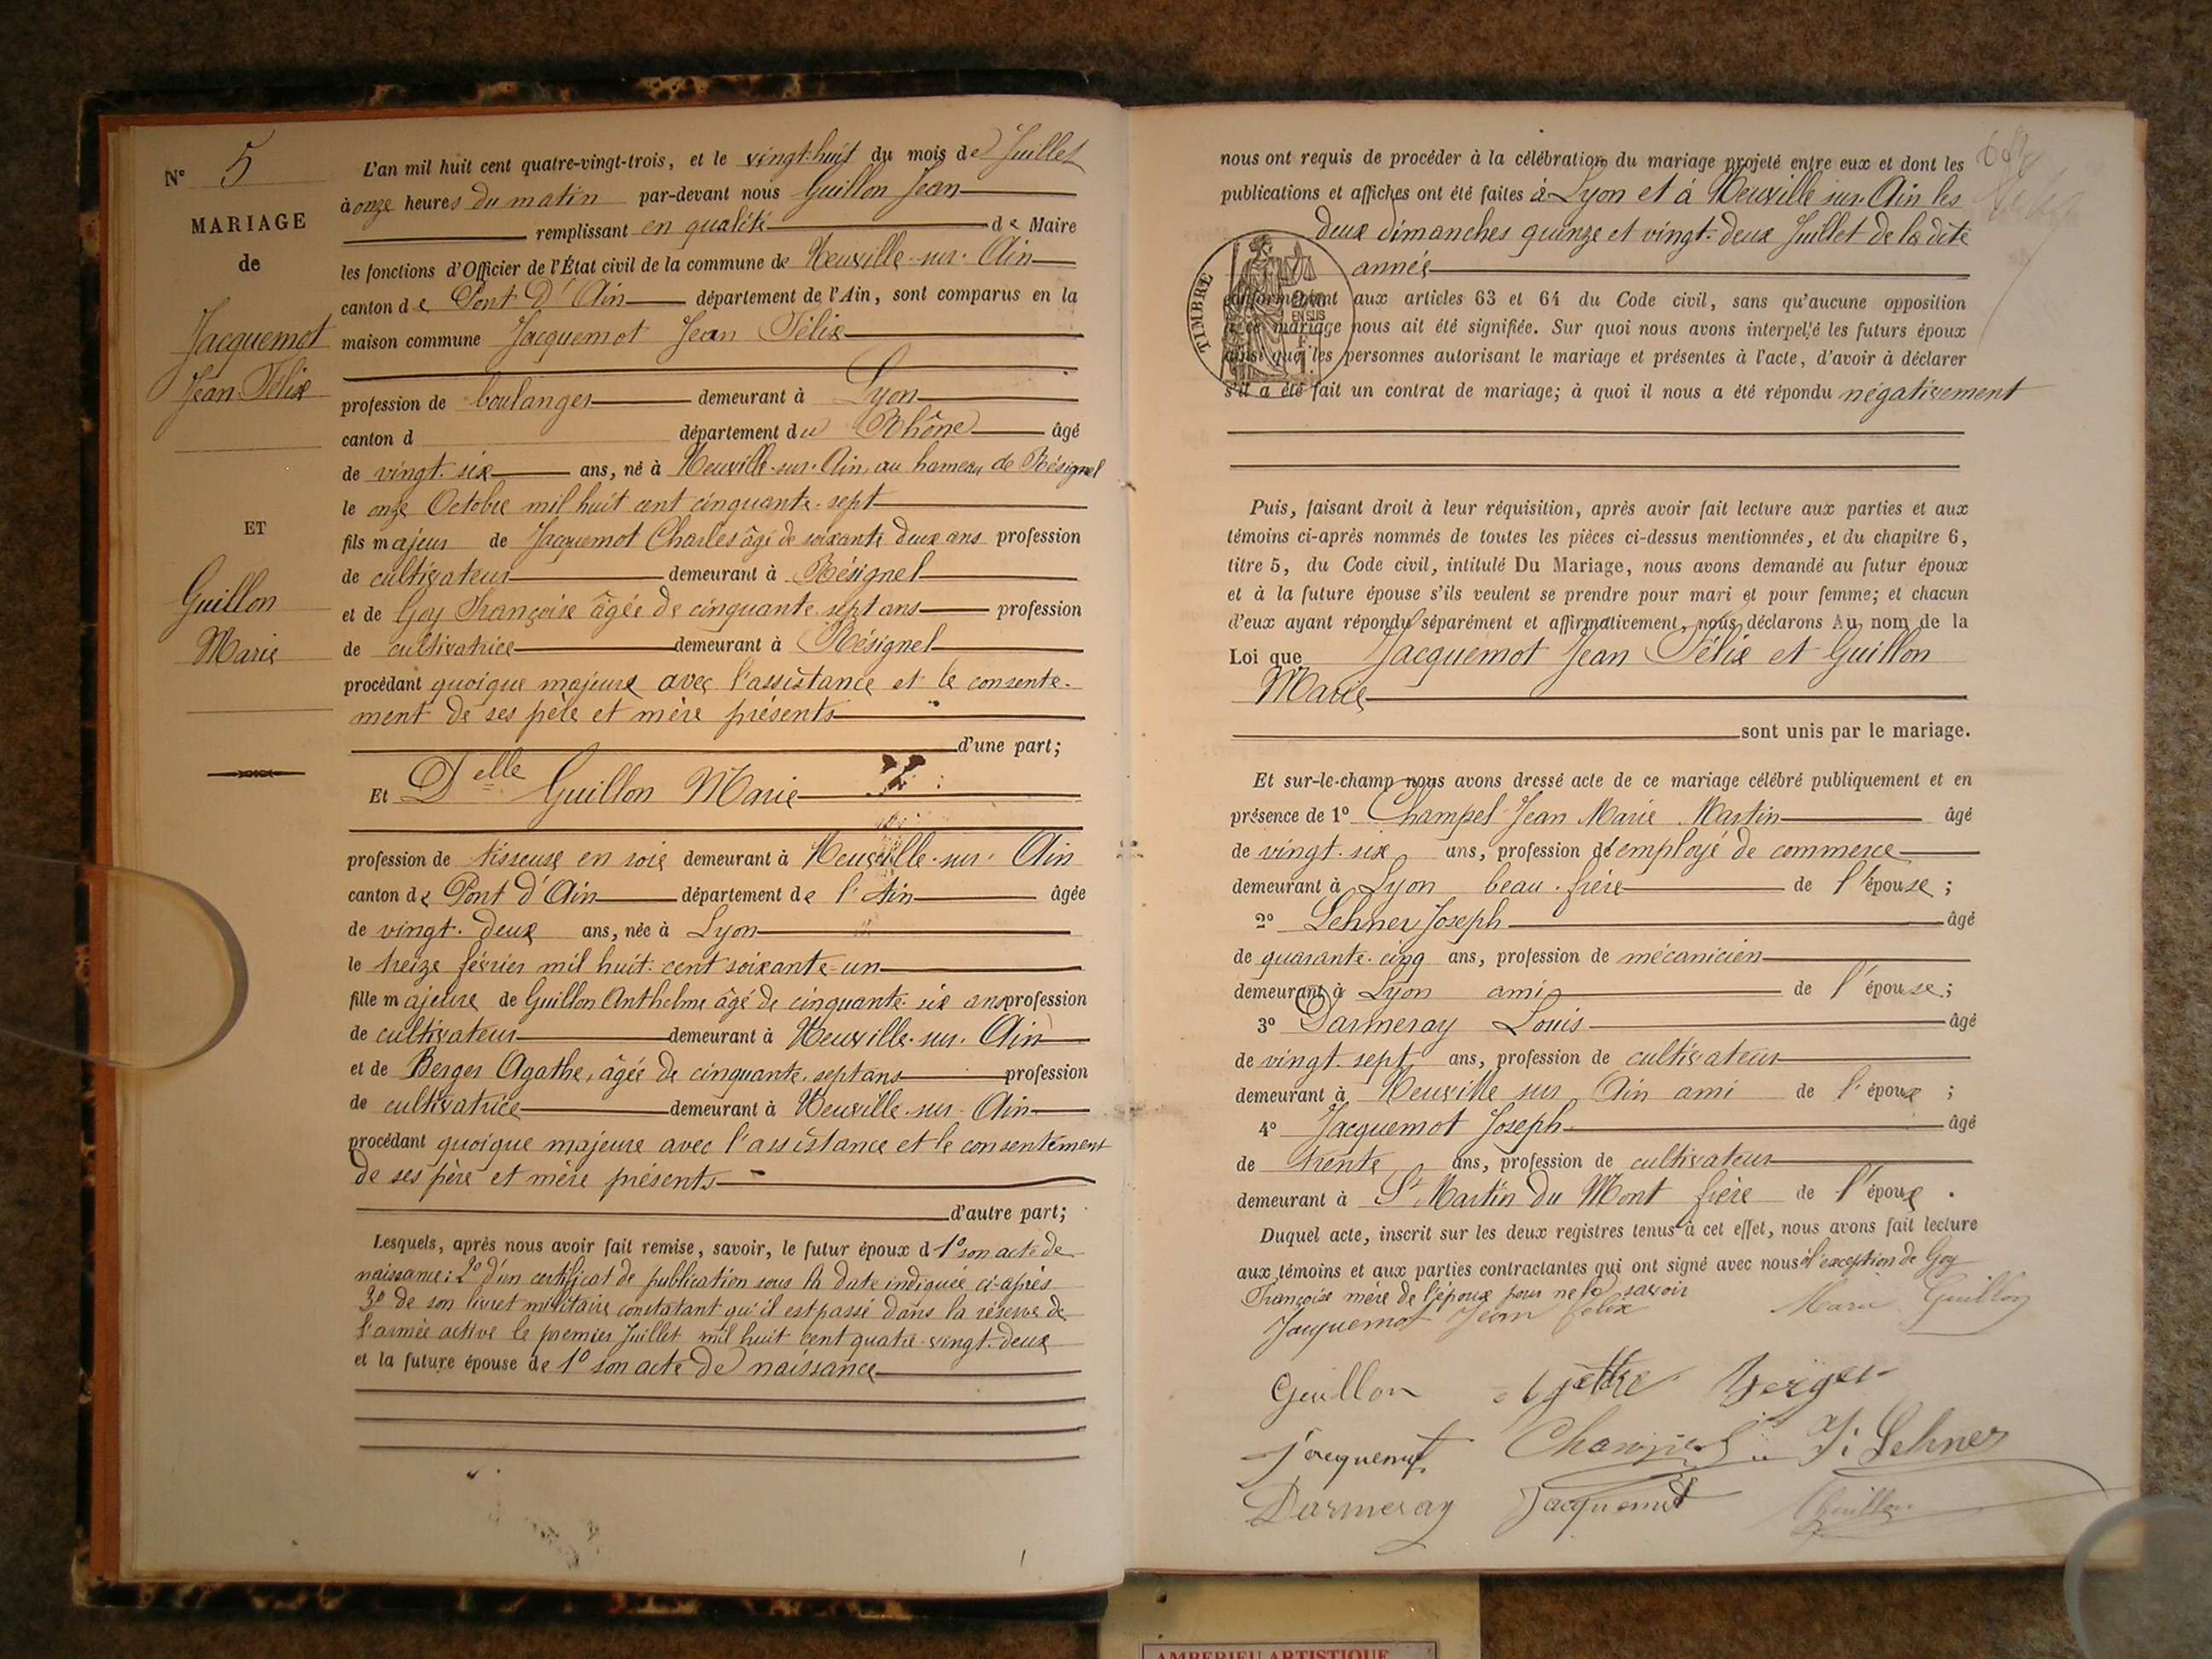 N° 5
MARIAGE
de
Jacquemot
Jean Félix
ET
Guillon
Marie
L'an mil huit cent quatre-vingt-trois, et le vingt-huit du mois de Juillet
à onze heures du matin par-devant nous Guillon Jean
remplissant en qualité de Maire
les fonctions d'Officier de l'État civil de la commune de Neuville-sur-Ain
canton de Pont d'Ain département de l'Ain, sont comparus en la
maison commune Jacquemot Jean Félix
profession de boulanger demeurant à Lyon
canton d département du Rhône âgé
de vingt-six ans, né à Neuville-sur-Ain, au hameau de Résignel
le onze Octobre mil huit cent cinquante-sept
fils majeur de Jacquemot Charles âgé de soixante deux ans profession
de cultivateur demeurant à Résignel
et de Goy Françoise âgée de cinquante-sept ans profession
de cultivatrice demeurant à Résignel
procédant quoique majeur avec l'assistance et le consente-
ment de ses père et mère présents
d'une part;
Et Delle Guillon Marie
profession de tisseuse en soie demeurant à Neuville-sur-Ain
canton de Pont d'Ain département de l'Ain âgée
de vingt-deux ans, née à Lyon
le treize février mil huit-cent soixante-un
fille majeure de Guillon Anthelme âgé de cinquante-six ans profession
de cultivateur demeurant à Neuville-sur-Ain
et de Berger Agathe, âgée de cinquante-sept ans profession
de cultivatrice demeurant à Neuville-sur-Ain
procédant quoique majeure avec l'assistance et le consentement
de ses père et mère présents
d'autre part;
Lesquels, après nous avoir fait remise, savoir, le futur époux d 1° son acte de
naissance; 2° d'un certificat de publication sous la date indiquée ci-après
3° de son livret militaire constatant qu'il est passé dans la réserve de
l'armée active le premier Juillet mil huit cent quatre-vingt-deux
et la future épouse de 1° son acte de naissance
nous ont requis de procéder à la célébration du mariage projeté entre eux et dont les
publications et affiches ont été faites à Lyon et à Neuville-sur-Ain les
deux dimanches quinze et vingt-deux Juillet de la dite
année
TIMBRE
EN SUS
conformément aux articles 63 et 64 du Code civil, sans qu'aucune opposition
à ce mariage nous ait été signifiée. Sur quoi nous avons interpellé les futurs époux
ainsi que les personnes autorisant le mariage et présentes à l'acte, d'avoir à déclarer
s'il a été fait un contrat de mariage; à quoi il nous a été répondu négativement
Puis, faisant droit à leur réquisition, après avoir fait lecture aux parties et aux
témoins ci-après nommés de toutes les pièces ci-dessus mentionnées, et du chapitre 6,
titre 5, du Code civil, intitulé Du Mariage, nous avons demandé au futur époux
et à la future épouse s'ils veulent se prendre pour mari et pour femme; et chacun
d'eux ayant répondu séparément et affirmativement, nous déclarons Au nom de la
Loi que Jacquemot Jean Félix et Guillon
Marie
sont unis par le mariage.
Et sur-le-champ nous avons dressé acte de ce mariage célébré publiquement et en
présence de 1° Champel Jean Marie Martin âgé
de vingt-six ans, profession d'employé de commerce
demeurant à Lyon beau-frère de l'épouse;
2° Lehner Joseph âgé
de quarante-cinq ans, profession de mécanicien
demeurant à Lyon ami de l'épouse;
3° Darmeray Louis âgé
de vingt-sept ans, profession de cultivateur
demeurant à Neuville sur Ain ami de l'époux;
4° Jacquemot Joseph âgé
de trente ans, profession de cultivateur
demeurant à St Martin du Mont frère de l'époux.
Duquel acte, inscrit sur les deux registres tenus à cet effet, nous avons fait lecture
aux témoins et aux parties contractantes qui ont signé avec nous à l'exception de Goy
Françoise mère de l'époux pour ne le savoir
Jacquemot Jean felix Marie Guillon
Guillon Berger
Jacquemot Champel J. Lehner
Darmeray Jacquemot Guillon
AMBERIEU ARTISTIQUE